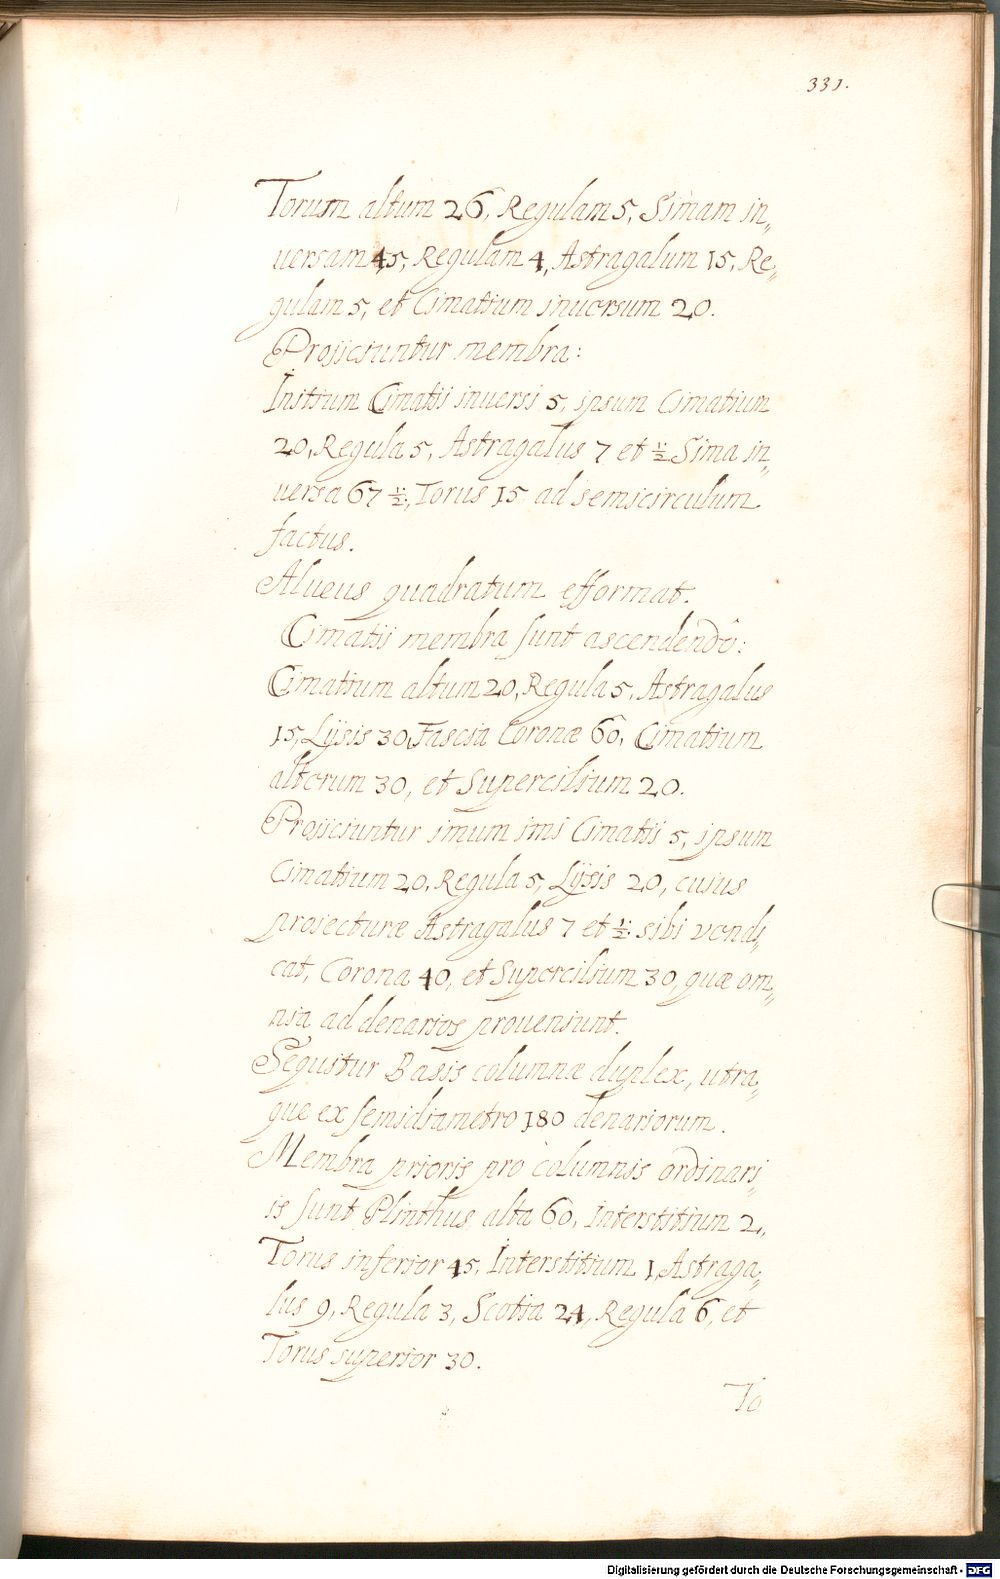 331.
Torum altum 26, Regulam 5, Simam in„
versam 45, Regulam 4, Astragalum 15, Re„
gulam 5, et Cimatium inversum 20.
Projiciuntur membra:
Initium Cimatii inversi 5, ipsum Cimatium
20, Regula 5, Astragalus 7 et ½ Sima in„
versa 67 ½, Torus 15 ad semicirculum
factus.
Alueus quadratum efformat.
Cimatii membra sunt ascendendô:
Cimatium altum 20, Regula 5, Astragalus
15, Lÿsis 30, Fascia Coronæ 60, Cimatium
alterum 30, et Supercilium 20.
Projiciuntur imum imi Cimatii 5, ipsum
Cimatium 20, Regula 5, Lÿsis 20, cujus
projecturæ Astragalus 7 et ½ sibi vendi„
cat, Corona 40, et Supercilium 30, quæ om„
nia ad denarios proveniunt.
Sequitur Basis columnæ duplex, utra„
que ex semidiametro 180 denariorum.
Membra prioris pro columnis ordinari„
is sunt Plinthus alta 60, Interstitium 2,
Torus inferior 45, Interstitium 1, Astraga„
lus 9, Regula 3, Scotia 24, Regula 6, et
Torus superior 30.
To
Digitalisierung gefördert durch die Deutsche Forschungsgemeinschaft - DFG